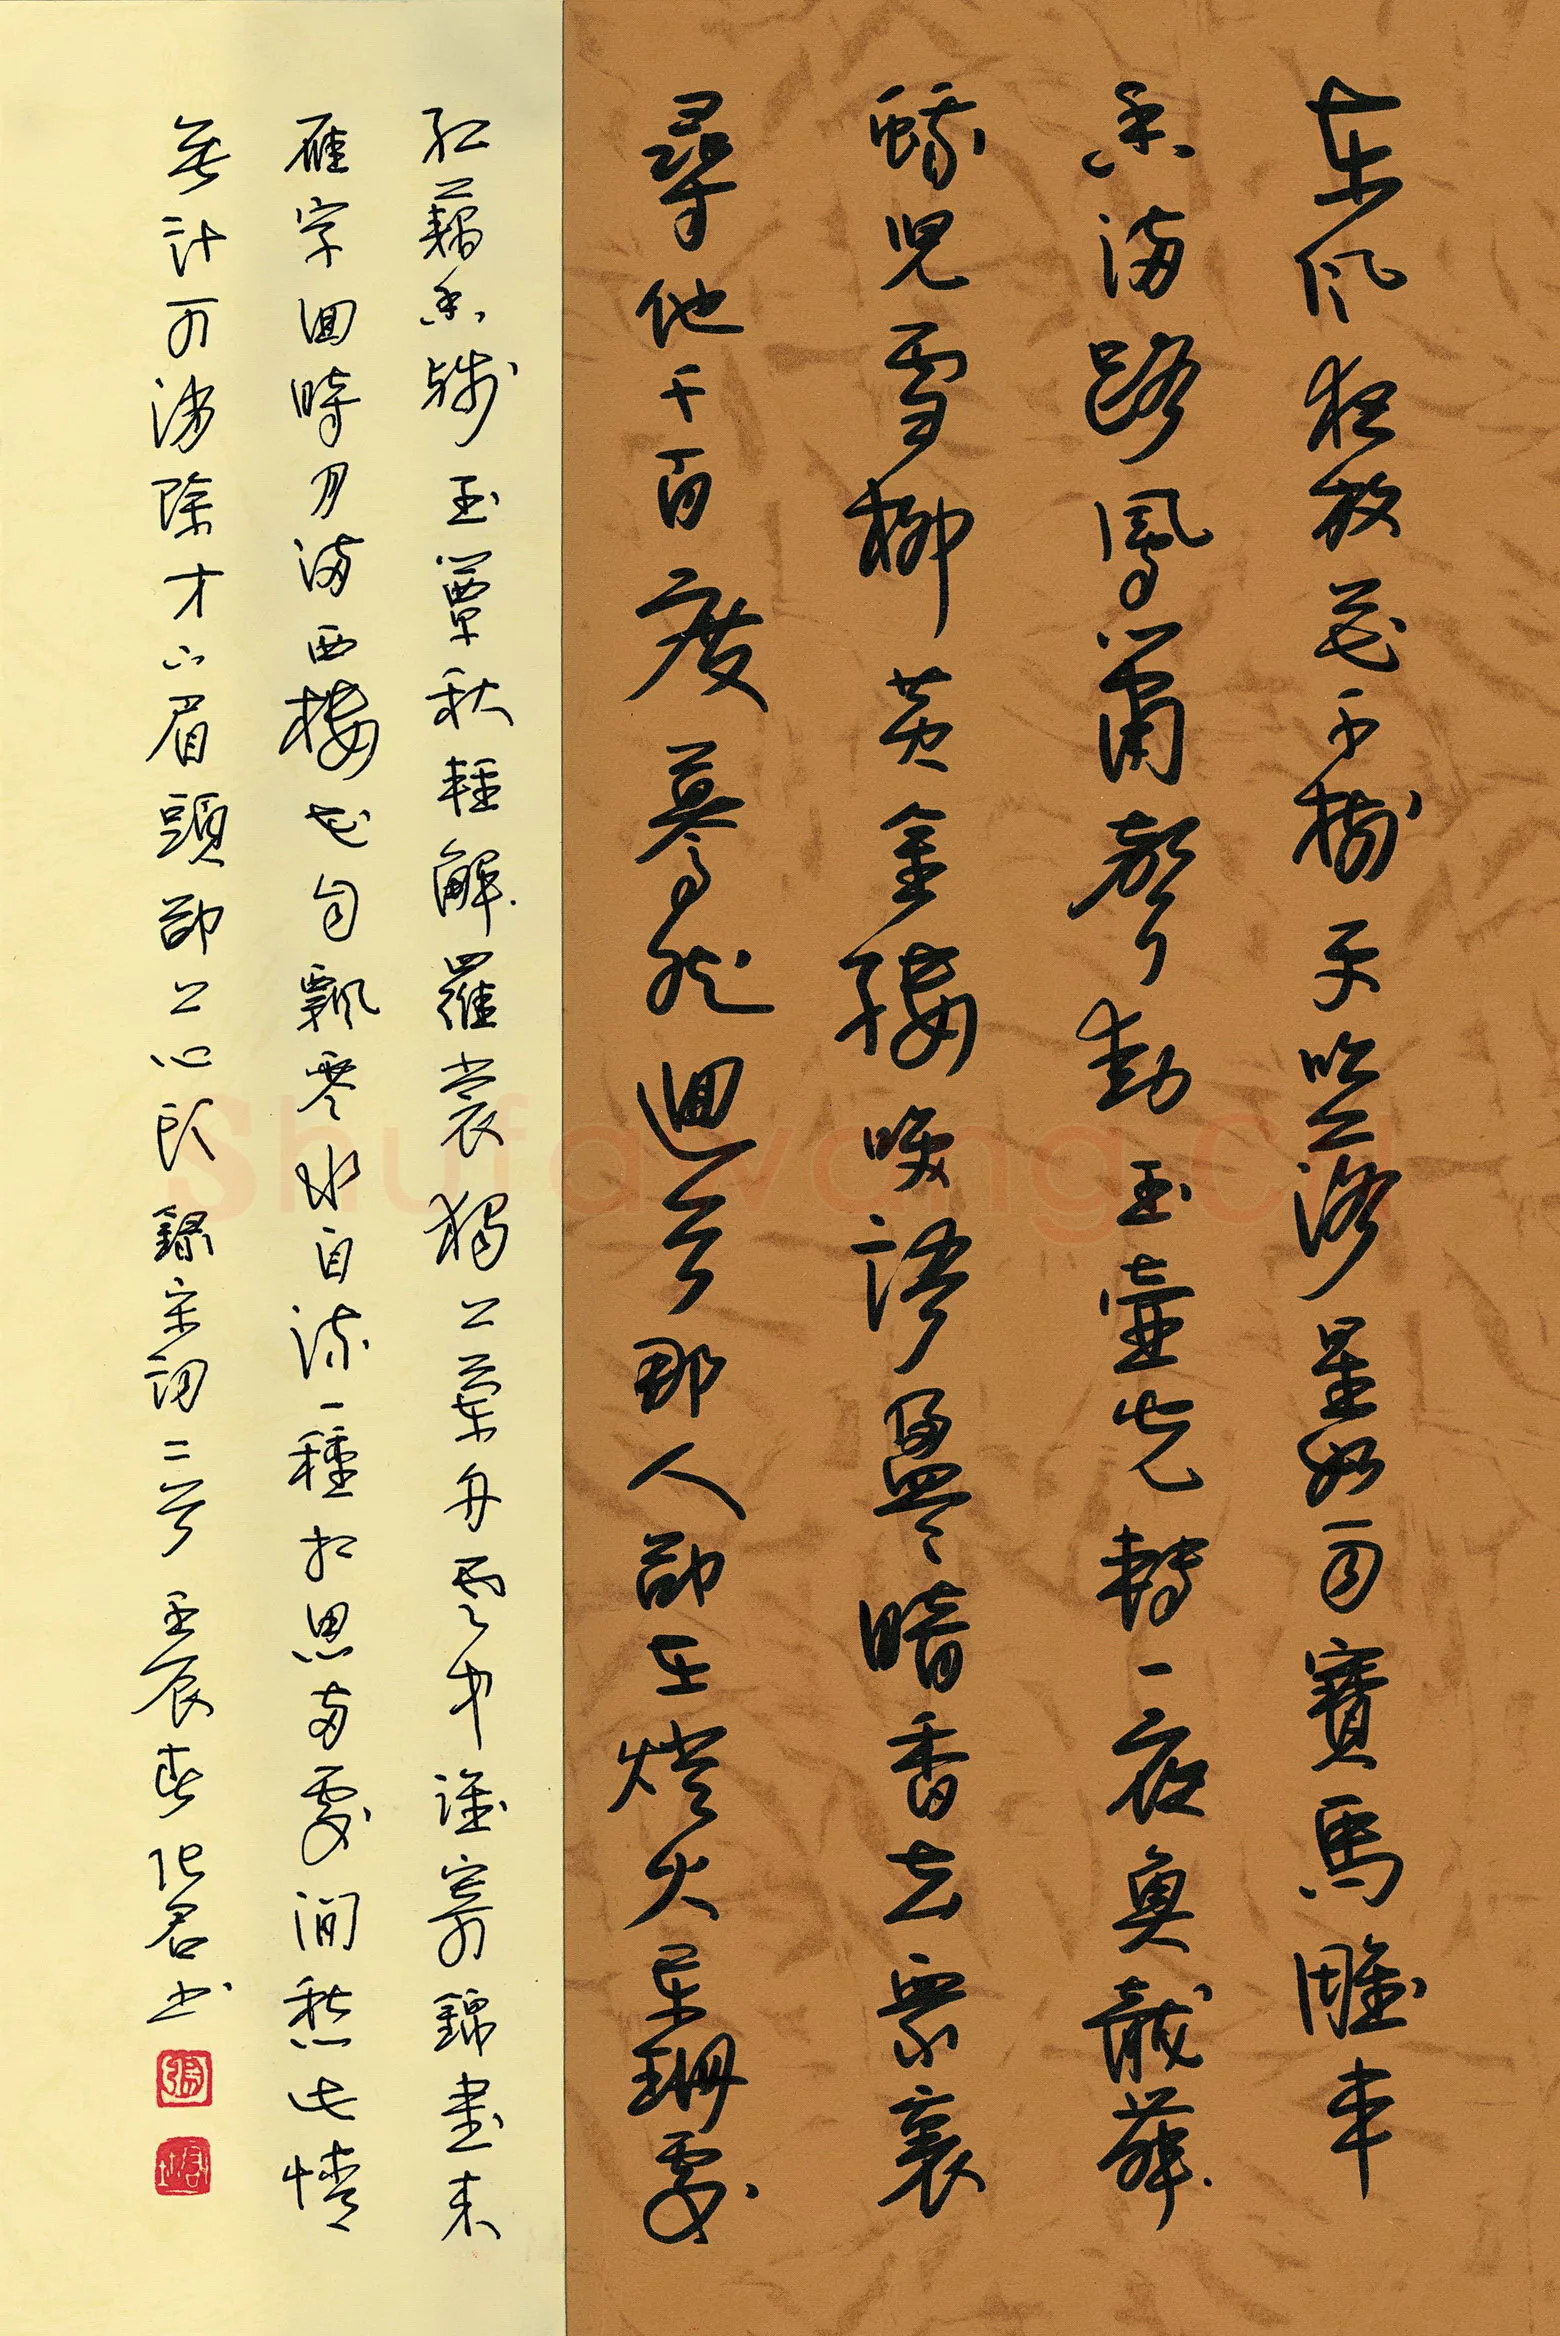 东风夜放花千樹更吹落星如雨寶馬雕車
香滿路鳳簫聲動玉壺光轉一夜魚龍舞
蛾兒雪柳黃金縷笑語盈盈暗香去眾裏
尋他千百度驀然迴首那人卻在燈火闌珊處
紅藕香殘玉簟秋輕解羅裳獨上蘭舟雲中誰寄錦書來
雁字回時月滿西樓花自飄零水自流一種相思兩處閒愁此情
無計可消除才下眉頭卻上心頭錄宋詞二首壬辰春張君書
Shufawang.Cn